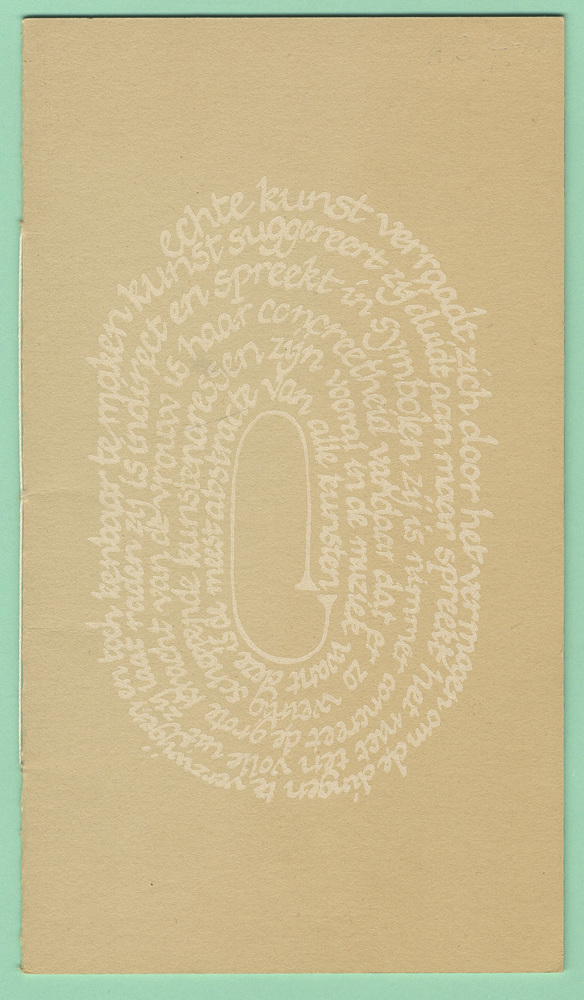 echte kunst verraadt zich door het vermogen om de dingen te verzwijgen en toch kenbaar te maken
kunst suggereert zij duidt aan maar spreekt het niet ten volle uit zij laat raden zij is indirect
en spreekt in symbolen zij is nimmer concreet de grote kracht van de vrouw is
haar concreetheid vandaar dat er zo weinig scheppende kunstenaressen
zijn vooral in de muziek want deze is de meest abstracte
van alle kunsten